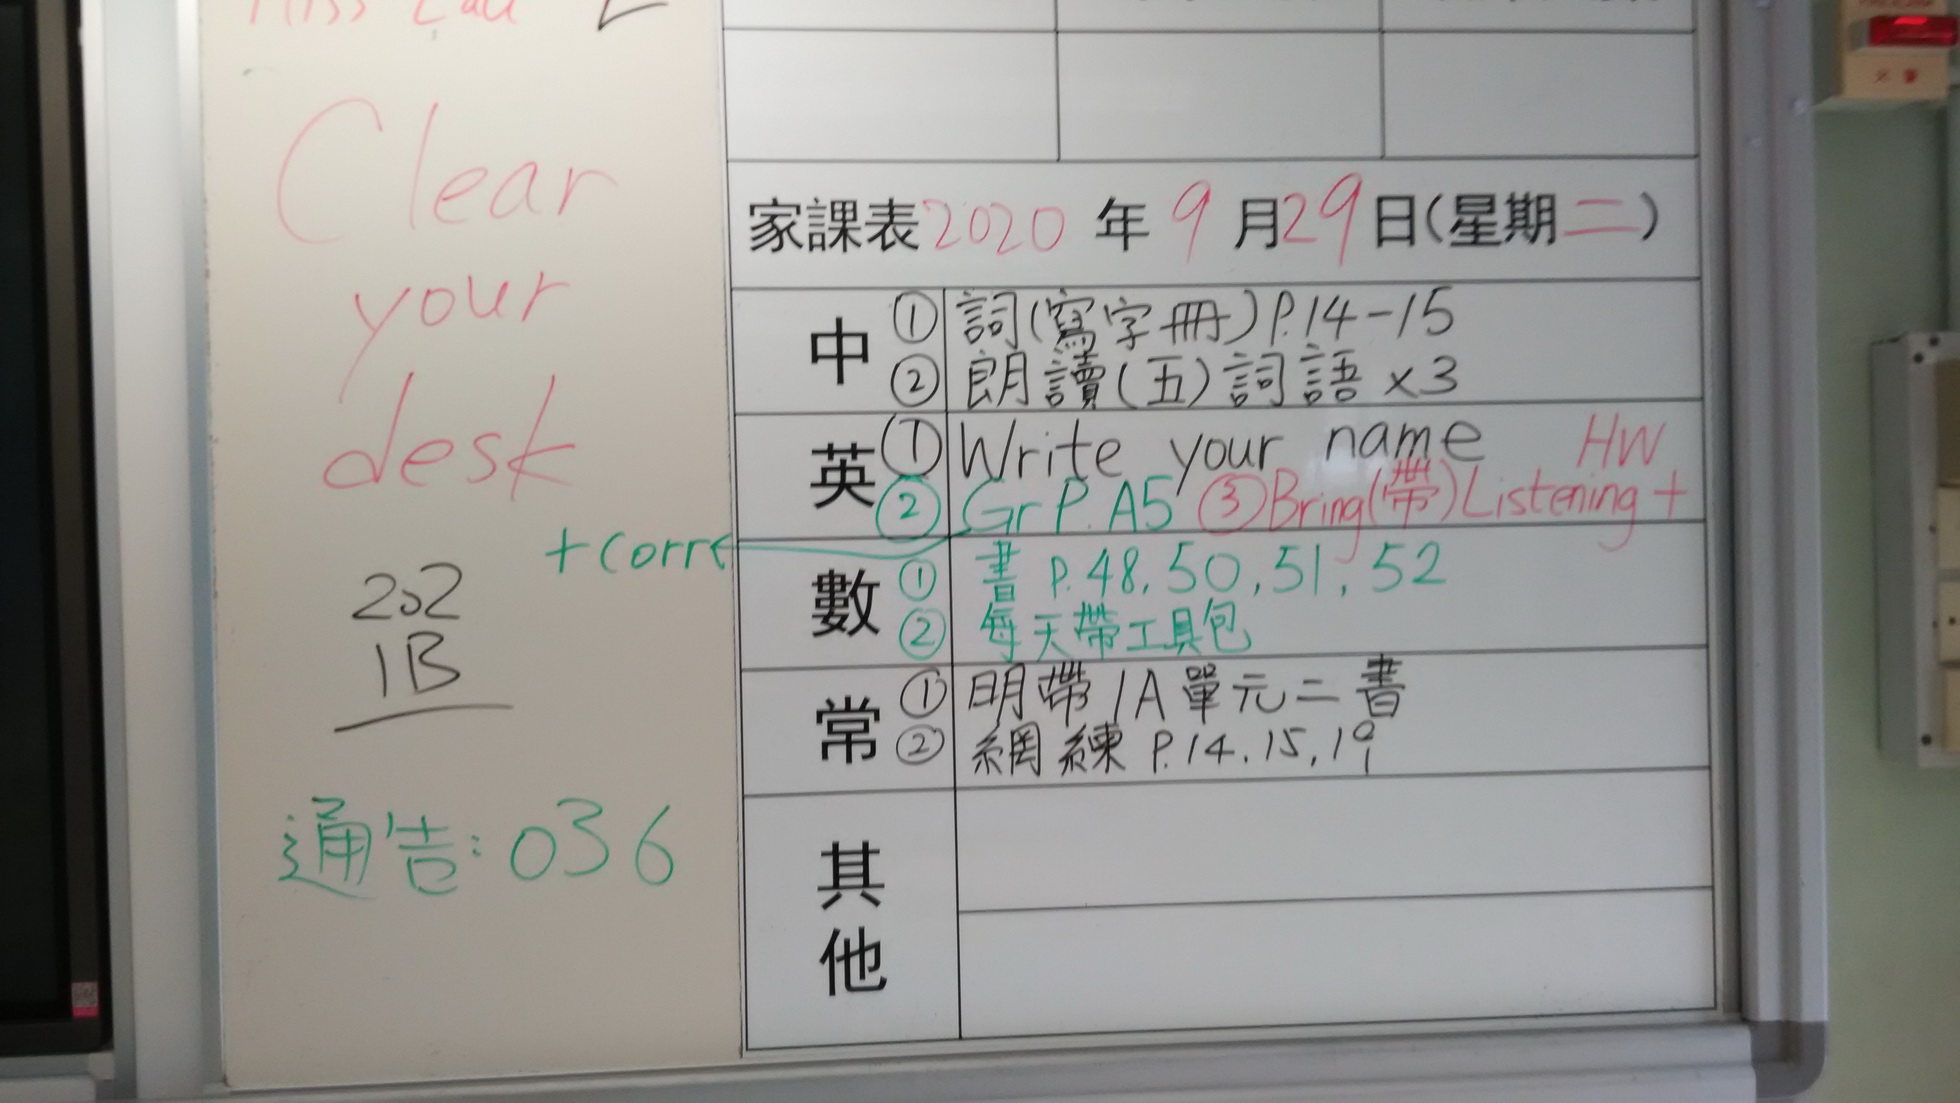 Miss Lau
Clear
your
desk
+corre
202
1B
通告:036
家課表2020年9月29日(星期二)
中
① 詞(寫字冊)P.14-15
② 朗讀(五)詞語 x3
英
① Write your name HW
② Gr P. A5 ③Bring(帶)Listening +
數
① 書 P.48,50,51,52
② 每天帶工具包
常
① 明帶1A單元二書
② 網練 P.14,15,19
其他
火警